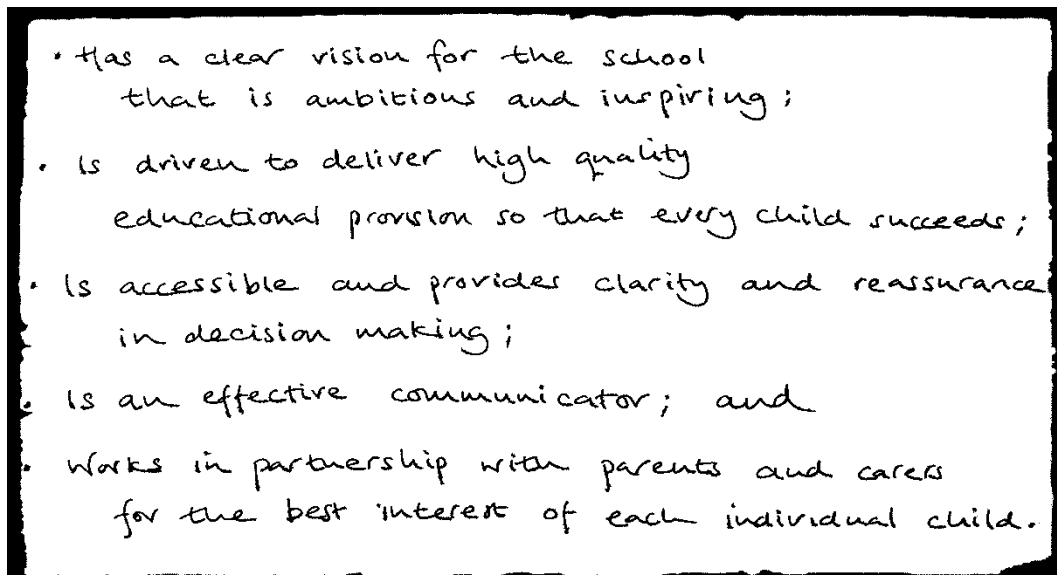 • Has a clear vision for the school
that is ambitious and inspiring;
• Is driven to deliver high quality
educational provision so that every child succeeds;
• Is accessible and provides clarity and reassurance
in decision making;
• Is an effective communicator; and
• Works in partnership with parents and carers
for the best interest of each individual child.